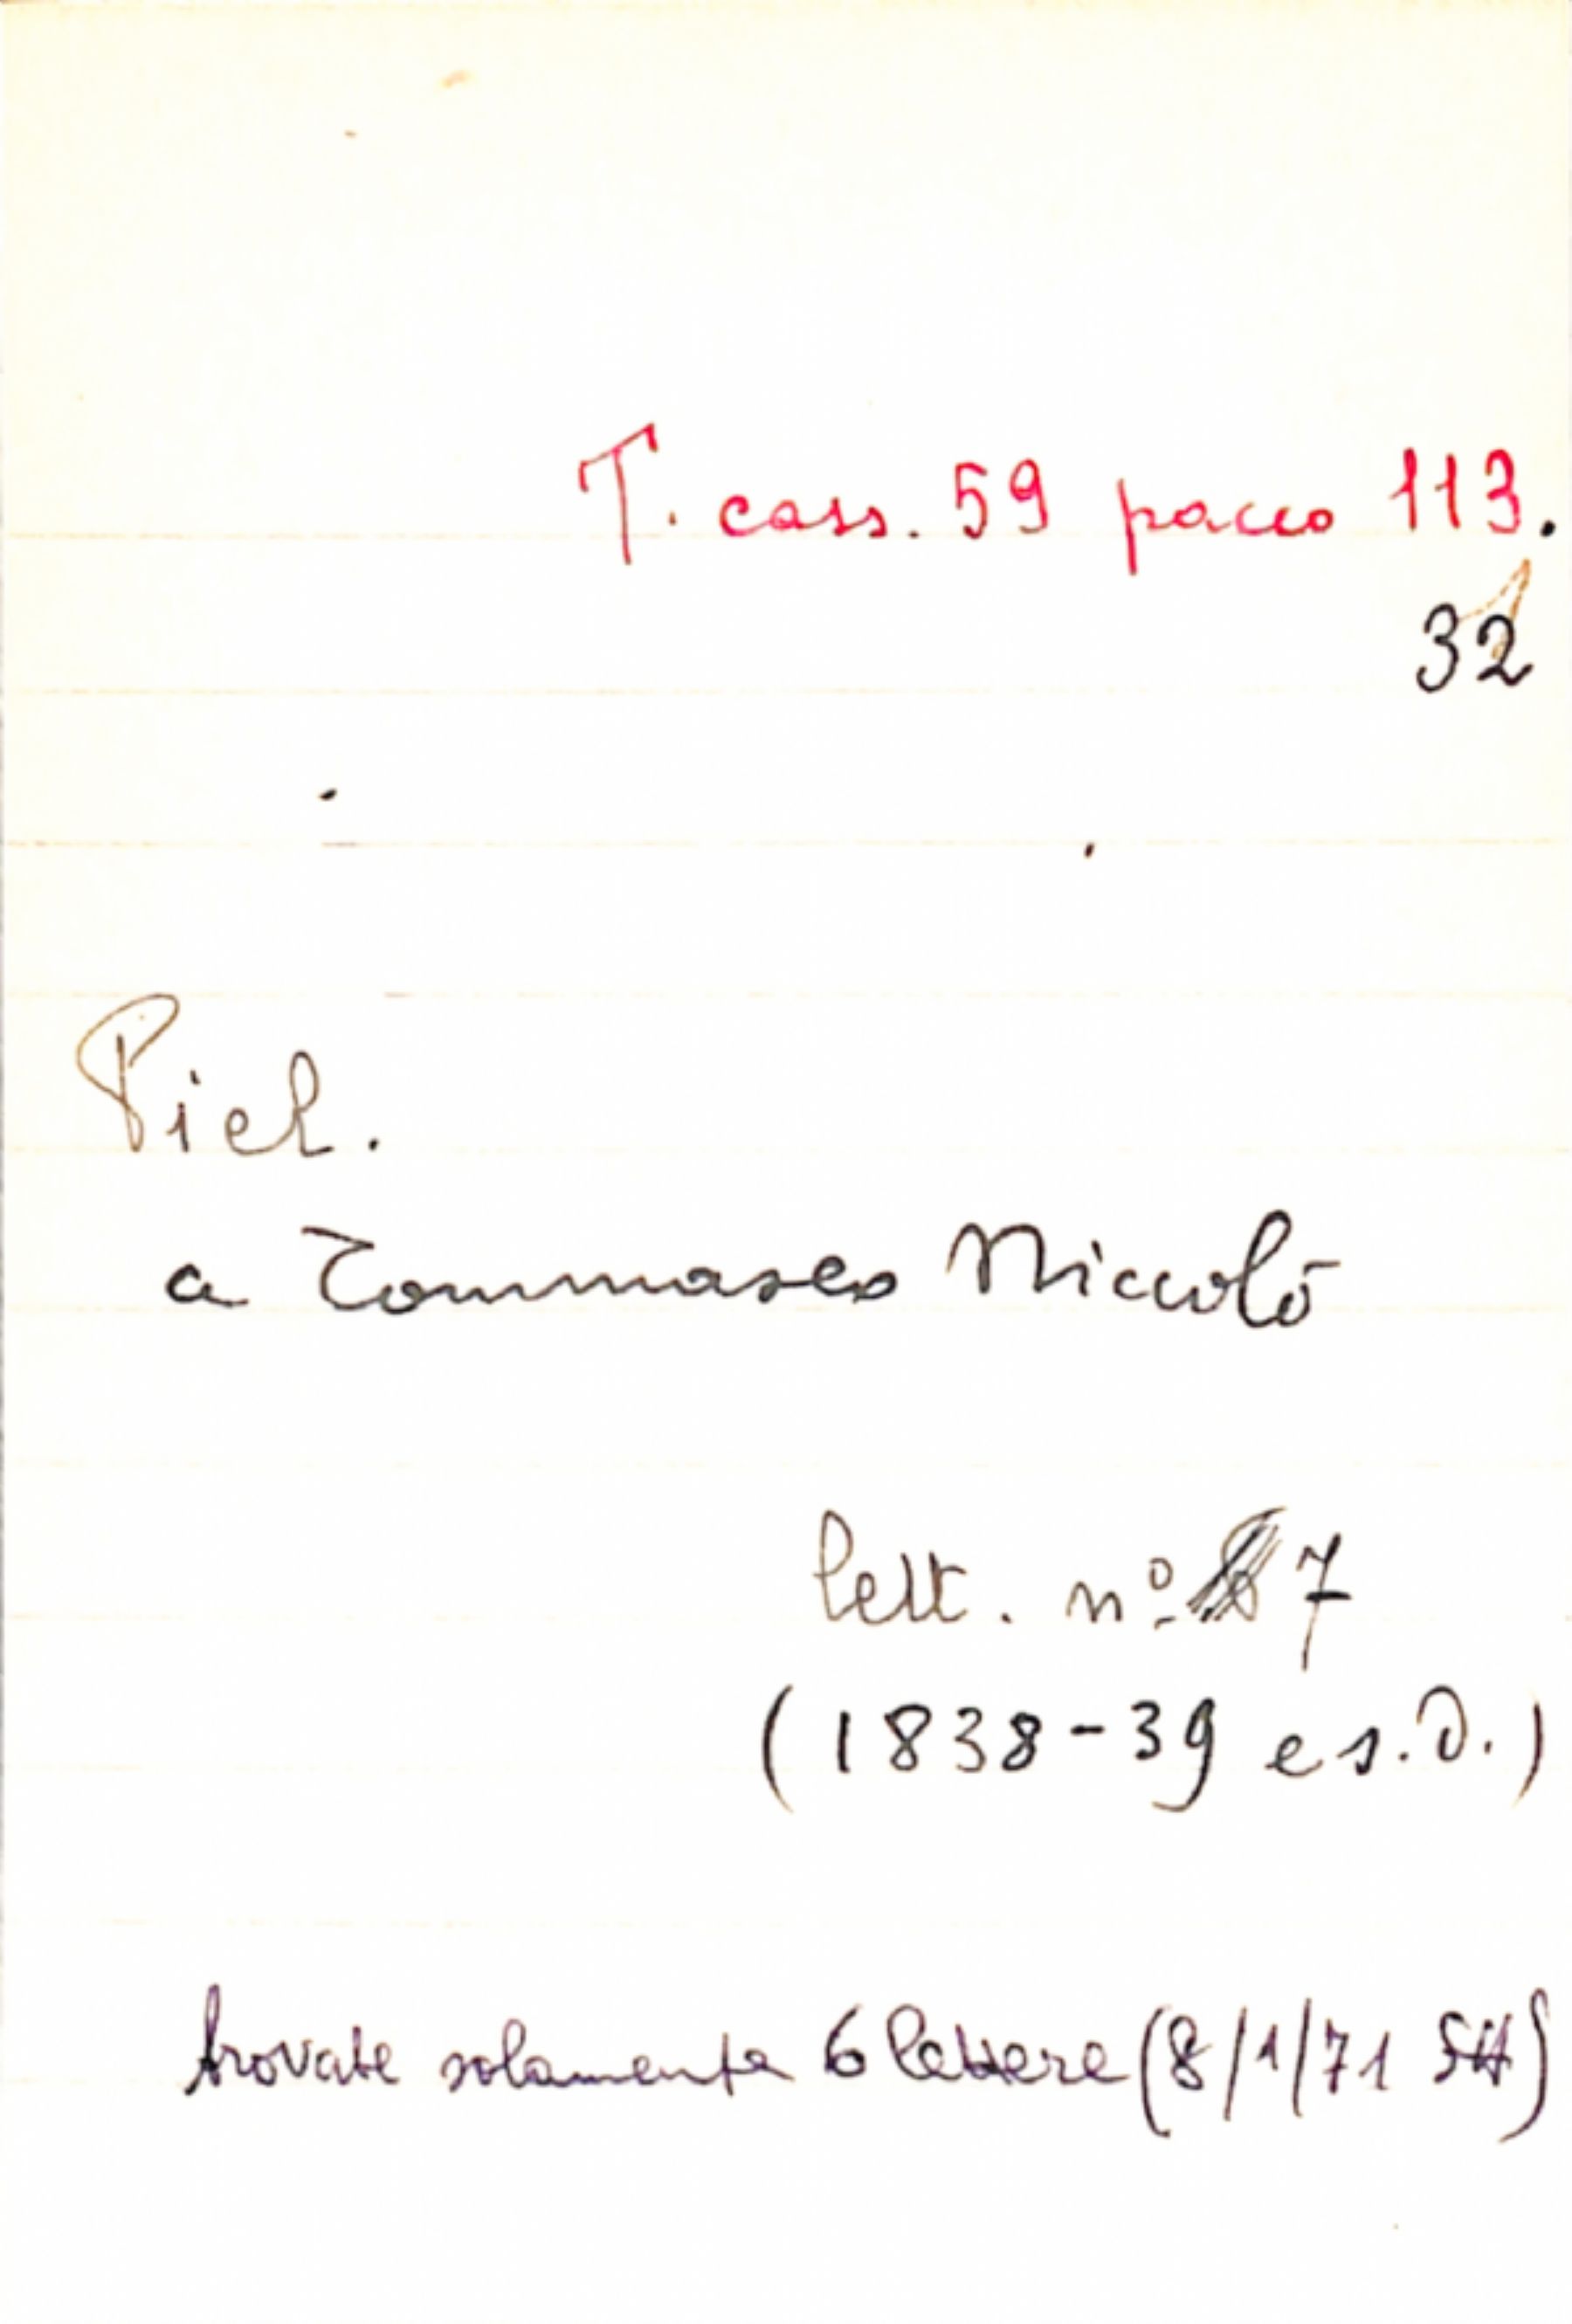 T. cass. 59 pacco 113.
32
Piel.
a Tommaseo Niccolò
lett. nº 7
(1838-39 e s.d.)
trovate solamente 6 lettere (8/1/71 SH)